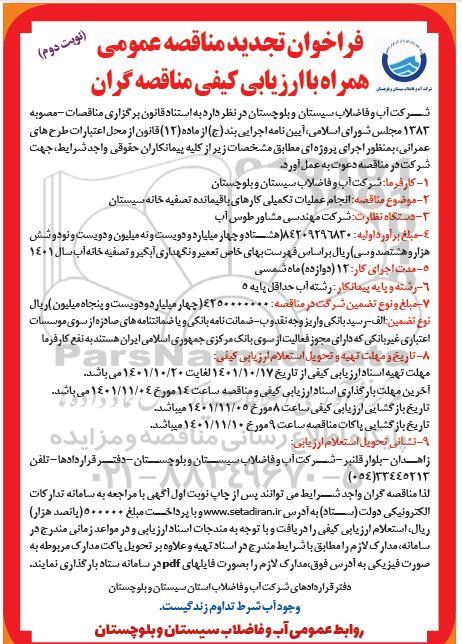 فراخوان تجدید مناقصه عمومی
(نوبت دوم)
همراه با ارزیابی کیفی مناقصه گران
شرکت آب و فاضلاب سیستان و بلوچستان
شرکت آب و فاضلاب سیستان و بلوچستان در نظر دارد به استناد قانون برگزاری مناقصات – مصوبه
۱۳۸۳ مجلس شورای اسلامی، آیین نامه اجرایی بند (ج) از ماده (۱۲) قانون از محل اعتبارات طرح های
عمرانی، بمنظور اجرای پروژه ای مطابق مشخصات زیر از کلیه پیمانکاران حقوقی واجد شرایط، جهت
شرکت در مناقصه دعوت به عمل آورد.
۱- کارفرما: شرکت آب و فاضلاب سیستان و بلوچستان
۲- موضوع مناقصه: انجام عملیات تکمیلی کارهای باقیمانده تصفیه خانه سیستان
۳- دستگاه نظارت: شرکت مهندسی مشاور طوس آب
۴- مبلغ برآورد اولیه: ۸۴۲۰۹۲۹۶۸۳۰ (هشتاد و چهار میلیارد و دویست و نه میلیون و دویست و نود و شش
هزار و هشتصد و سی) ریال بر اساس فهرست بهای خاص تعمیر و نگهداری آبگیر و تصفیه خانه آب سال ۱۴۰۱
۵- مدت اجرای کار: ۱۲ (دوازده) ماه شمسی
۶- رشته و پایه پیمانکار: رشته آب حداقل پایه ۵
۷- مبلغ و نوع تضمین شرکت در مناقصه: ۴۲۵۰۰۰۰۰۰۰ (چهار میلیارد و دویست و پنجاه میلیون) ریال
نوع تضمین: الف- رسید بانکی واریز وجه نقد و ب- ضمانت نامه بانکی و یا ضمانتنامه های صادره از سوی موسسات
اعتباری غیر بانکی که دارای مجوز فعالیت از سوی بانک مرکزی جمهوری اسلامی ایران هستند به نفع کارفرما
۸- تاریخ و مهلت تهیه و تحویل استعلام ارزیابی کیفی:
مهلت تهیه اسناد ارزیابی کیفی از تاریخ ۱۴۰۱/۱۰/۱۷ لغایت ۱۴۰۱/۱۰/۲۰ می باشد.
آخرین مهلت بارگذاری اسناد ارزیابی کیفی و مناقصه ساعت ۱۴ مورخ ۱۴۰۱/۱۱/۰۴ می باشد.
تاریخ بازگشایی ارزیابی کیفی ساعت ۸ مورخ ۱۴۰۱/۱۱/۰۵ میباشد.
تاریخ بازگشایی پاکات مناقصه ساعت ۹ مورخ ۱۴۰۱/۱۱/۱۰ میباشد.
۹- نشانی تحویل استعلام ارزیابی:
زاهدان- بلوار قلنبر- شرکت آب و فاضلاب سیستان و بلوچستان – دفتر قراردادها – تلفن
۳۳۴۴۵۲۱۳ (۰۵۴)
لذا مناقصه گران واجد شرایط می توانند پس از چاپ نوبت اول آگهی با مراجعه به سامانه تدارکات
الکترونیکی دولت (ستاد) به آدرس www.setadiran.ir و با پرداخت مبلغ ۵۰۰۰۰۰ (پانصد هزار)
ریال، استعلام ارزیابی کیفی را دریافت و با توجه به مندجات اسناد ارزیابی و در مواعد زمانی مندرج در
سامانه، مدارک لازم را مطابق با شرایط مندرج در اسناد تهیه و علاوه بر تحویل پاکت مدارک مربوطه به
صورت فیزیکی به آدرس فوق، مدارک لازم را بصورت فایلهای pdf در سامانه ستاد بارگذاری نمایند.
دفتر قراردادهای شرکت آب و فاضلاب استان سیستان و بلوچستان
وجود آب شرط تداوم زندگیست.
روابط عمومی آب و فاضلاب سیستان و بلوچستان
ParsNa
۰۲۱-۸۸۳۴۹۶۷۰-۵